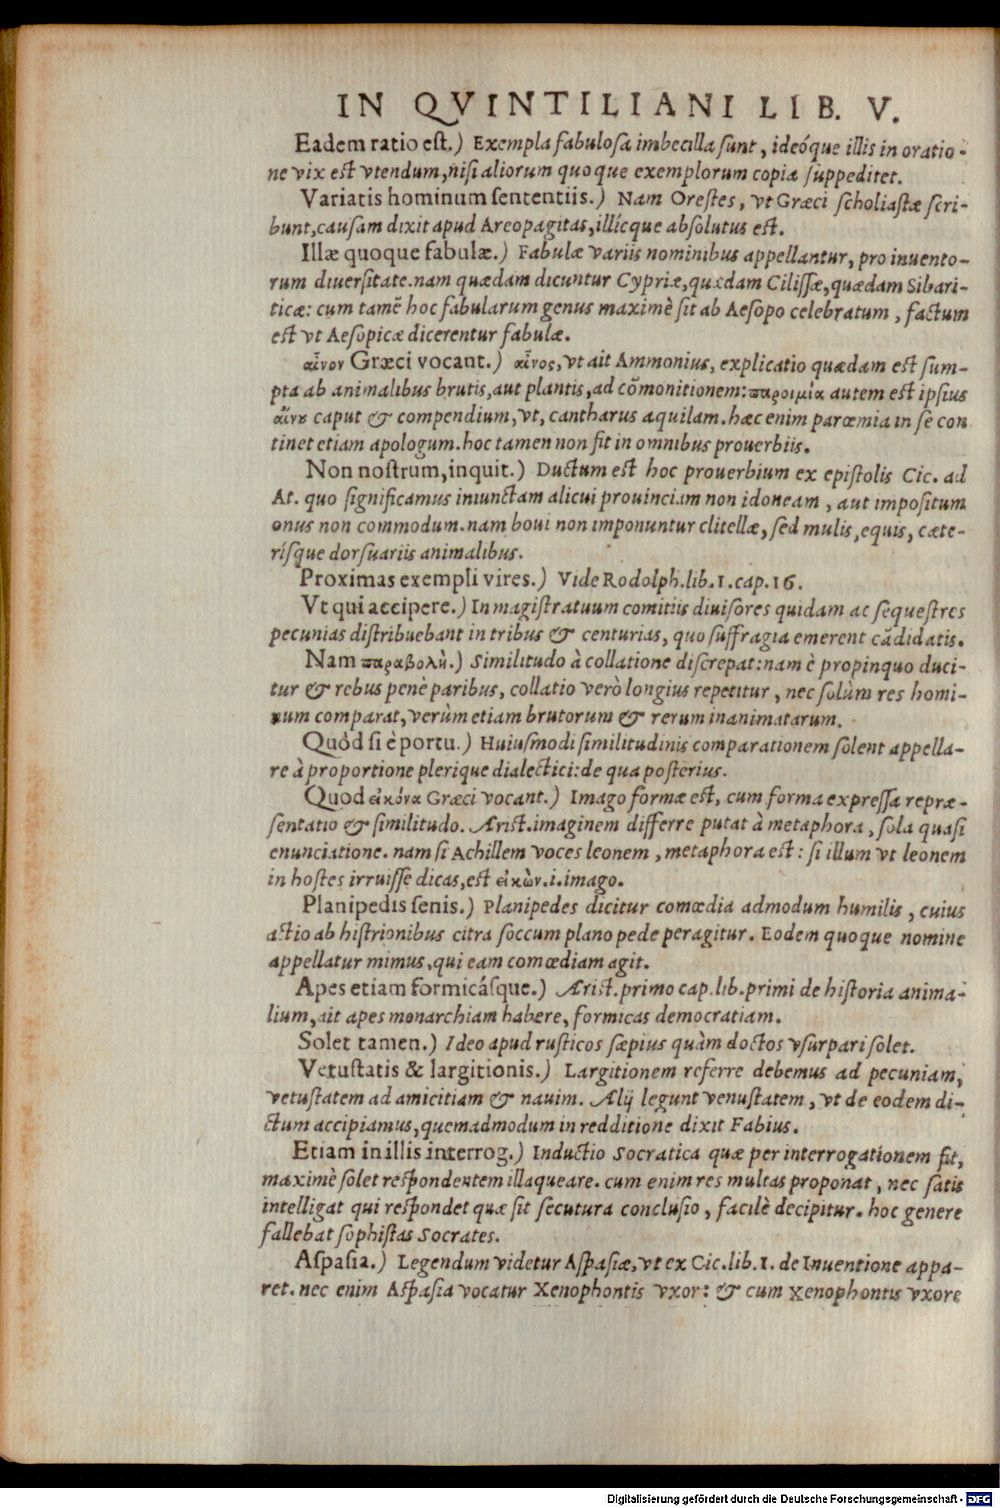 IN QVINTILIANI LIB. V.
Eadem ratio est.) Exempla fabulosa imbecilla sunt, ideóque illis in oratio-
ne vix est vtendum, nisi aliorum quoque exemplorum copia suppeditet.
Variatis hominum sententiis.) Nam Orestes, vt Græci scholiastæ scri-
bunt, causam dixit apud Areopagitas, illícque absolutus est.
Illæ quoque fabulæ.) Fabulæ variis nominibus appellantur, pro inuento-
rum diuersitate. nam quædam dicuntur Cypriæ, quædam Cilissæ, quædam Sibari-
ticæ: cum tamē hoc fabularum genus maximè sit ab Aesopo celebratum, factum
est vt Aesopicæ dicerentur fabulæ.
αἶνον Græci vocant.) αἶνος, vt ait Ammonius, explicatio quædam est sum-
pta ab animalibus brutis, aut plantis, ad cōmonitionem: παροιμία autem est ipsius
αἴνȣ caput & compendium, vt, cantharus aquilam. hæc enim parœmia in se con
tinet etiam apologum. hoc tamen non fit in omnibus prouerbiis.
Non nostrum, inquit.) Ductum est hoc prouerbium ex epistolis Cic. ad
At. quo significamus iniunctam alicui prouinciam non idoneam, aut impositum
onus non commodum. nam boui non imponuntur clitellæ, sed mulis, equis, cæte-
rísque dorsuariis animalibus.
Proximas exempli vires.) Vide Rodolph. lib. 1. cap. 16.
Vt qui accipere.) In magistratuum comitiis diuisores quidam ac sequestres
pecunias distribuebant in tribus & centurias, quo suffragia emerent cādidatis.
Nam παραβολὴ.) Similitudo à collatione discrepat: nam è propinquo duci-
tur & rebus penè paribus, collatio verò longius repetitur, nec solùm res homi-
num comparat, verùm etiam brutorum & rerum inanimatarum.
Quòd si è portu.) Huiusmodi similitudinis comparationem solent appella-
re à proportione plerique dialectici: de qua posterius.
Quod εἰκόνα Græci vocant.) Imago formæ est, cum forma expressa repræ-
sentatio & similitudo. Arist. imaginem differre putat à metaphora, sola quasi
enunciatione. nam si Achillem voces leonem, metaphora est: si illum vt leonem
in hostes irruisse dicas, est εἰκὼν. i. imago.
Planipedis senis.) Planipedes dicitur comœdia admodum humilis, cuius
actio ab histrionibus citra soccum plano pede peragitur. Eodem quoque nomine
appellatur mimus, qui eam comœdiam agit.
Apes etiam formicásque.) Arist. primo cap. lib. primi de historia anima-
lium, ait apes monarchiam habere, formicas democratiam.
Solet tamen.) Ideo apud rusticos sæpius quàm doctos vsurpari solet.
Vetustatis & largitionis.) Largitionem referre debemus ad pecuniam,
vetustatem ad amicitiam & nauim. Alij legunt venustatem, vt de eodem di-
ctum accipiamus, quemadmodum in redditione dixit Fabius.
Etiam in illis interrog.) Inductio Socratica quæ per interrogationem fit,
maximè solet respondentem illaqueare. cum enim res multas proponat, nec satis
intelligat qui respondet quæ sit secutura conclusio, facilè decipitur. hoc genere
fallebat sophistas Socrates.
Aspasia.) Legendum videtur Aspasiæ, vt ex Cic. lib. 1. de Inuentione appa-
ret. nec enim Aspasia vocatur Xenophontis vxor: & cum Xenophontis vxore
Digitalisierung gefördert durch die Deutsche Forschungsgemeinschaft - DFG